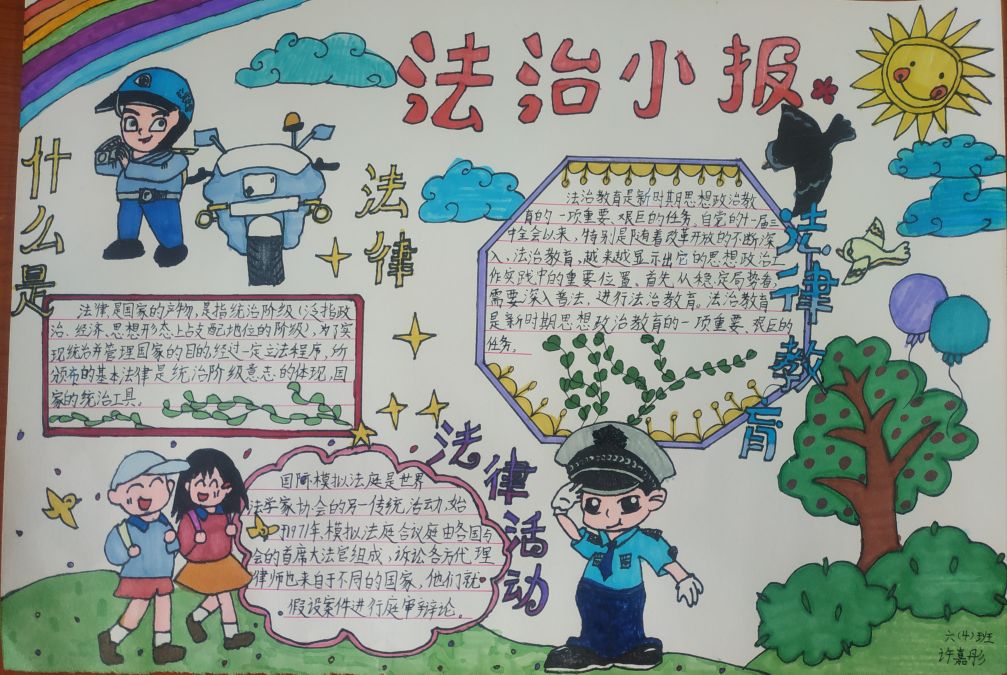 法治小报
什么是
法律
法律是国家的产物，是指统治阶级（泛指政
治、经济、思想形态上占支配地位的阶级），为了实
现统治并管理国家的目的，经过一定立法程序，所
颁布的基本法律是统治阶级意志的体现，国
家的统治工具。
法律教育
法治教育是新时期思想政治教
育的一项重要、艰巨的任务。自党的十一届三
中全会以来，特别是随着改革开放的不断深
入、法治教育，越来越显示出它的思想政治工
作实践中的重要位置。首先，从稳定局势看，
需要深入普法，进行法治教育。法治教育
是新时期思想政治教育的一项重要、艰巨的
任务。
法律活动
国际模拟法庭是世界
法学家协会的另一传统活动，始
于1971年，模拟法庭合议庭由各国与
会的首席大法官组成，诉讼各方代理
律师也来自于不同的国家，他们就
假设案件进行庭审辩论。
六（4）班
许嘉彤